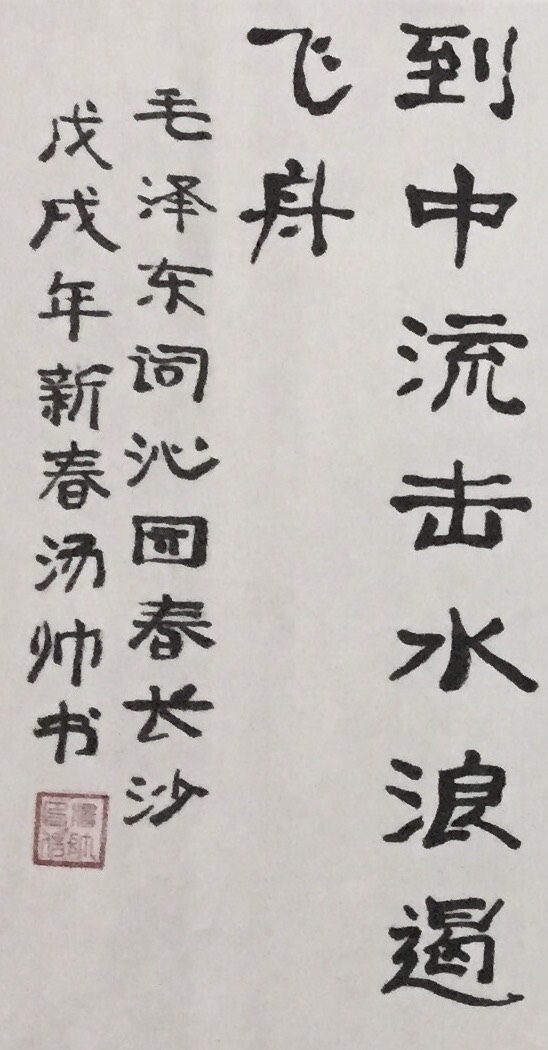 到中流击水浪遏
飞舟
毛泽东词沁园春长沙
戊戌年新春汤帅书